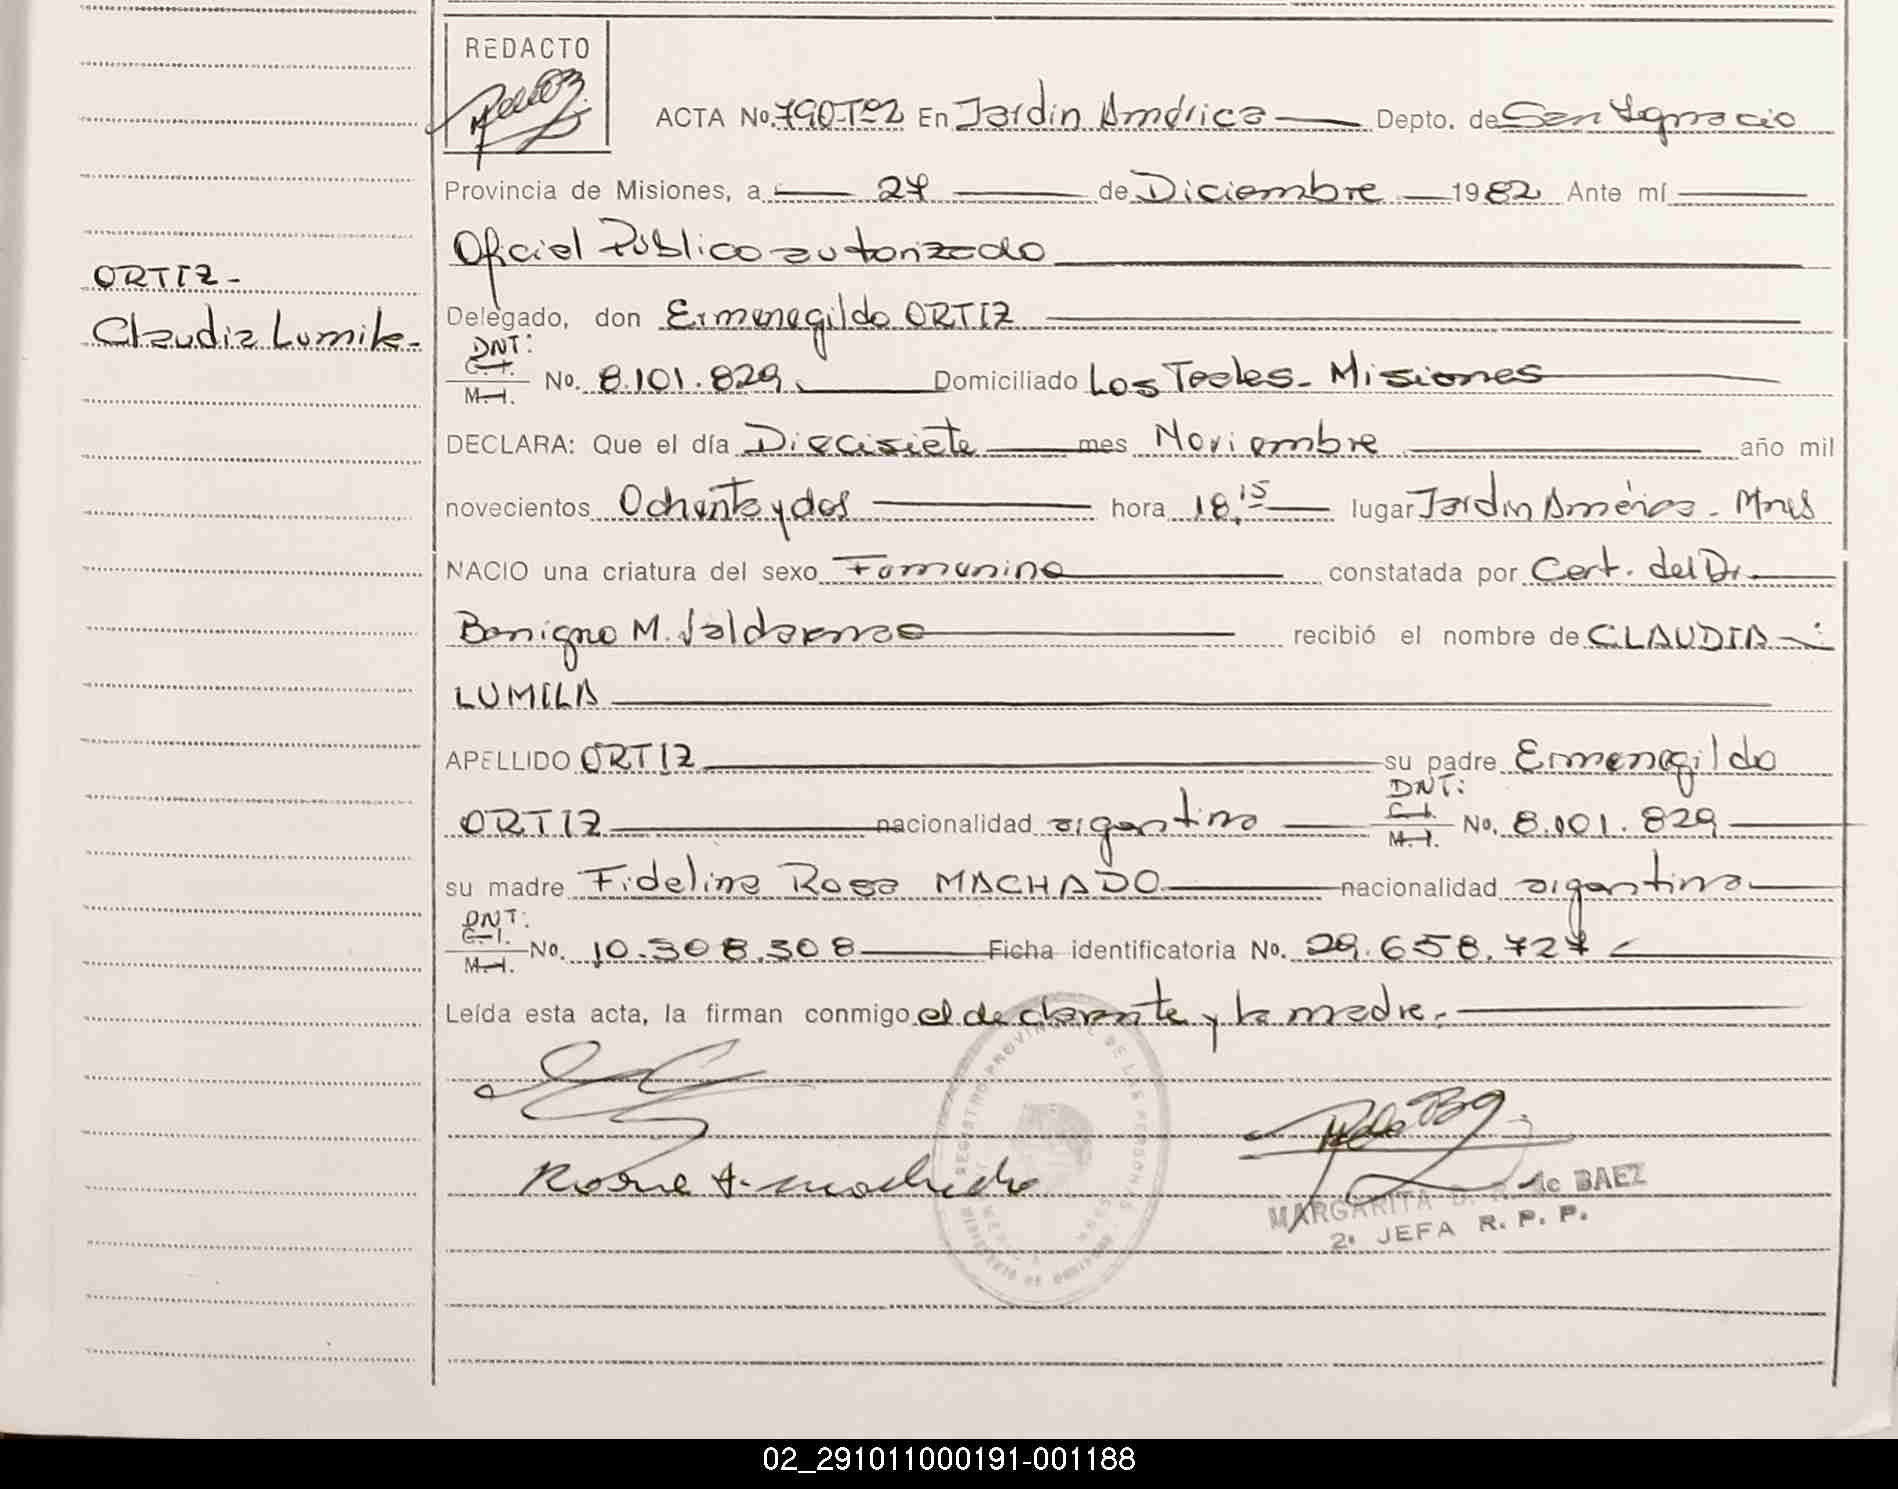 REDACTO
ACTA No. 790-Tº2 En Jardin América Depto. de San Ignacio
Provincia de Misiones, a 27 de Diciembre 1982 Ante mí
Oficial Público autorizado
ORTIZ-
Claudia Lumila-
Delegado, don Ermenegildo ORTIZ
DNI:
C.I.
M.I. No. 8.101.829 Domiciliado Los Teales - Misiones
DECLARA: Que el día Diecisiete mes Noviembre año mil
novecientos Ochenta y dos hora 18,15 lugar Jardin América - Mnes
NACIO una criatura del sexo Femenino constatada por Cert. del Dr.
Benigno M. recibió el nombre de CLAUDIA
LUMILA
APELLIDO ORTIZ su padre Ermenegildo
DNI:
ORTIZ nacionalidad argentino C.I.
M.I. No. 8.101.829
su madre Fidelina Rosa MACHADO nacionalidad argentina
DNI:
C.I.
M.I. No. 10.308.308 Ficha identificatoria No. 29.658.727
Leída esta acta, la firman conmigo el declarante y la madre.
REGISTRO PROVINCIAL DE LAS PERSONAS
MINISTERIO DE GOBIERNO
MARGARITA D. de BAEZ
2º JEFA R. P. P.
02_291011000191-001188